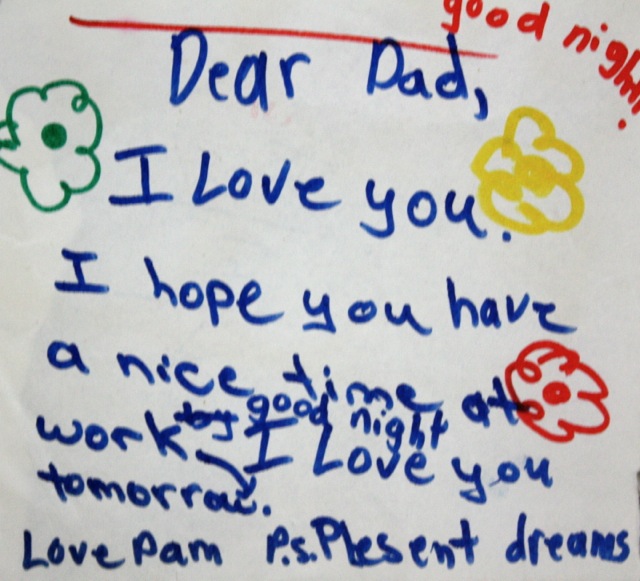 good night!
Dear Dad,
I Love you.
I hope you have
a nice time at
work good night
I Love you
tomorrow.
Love Pam P.s. Plesent dreams